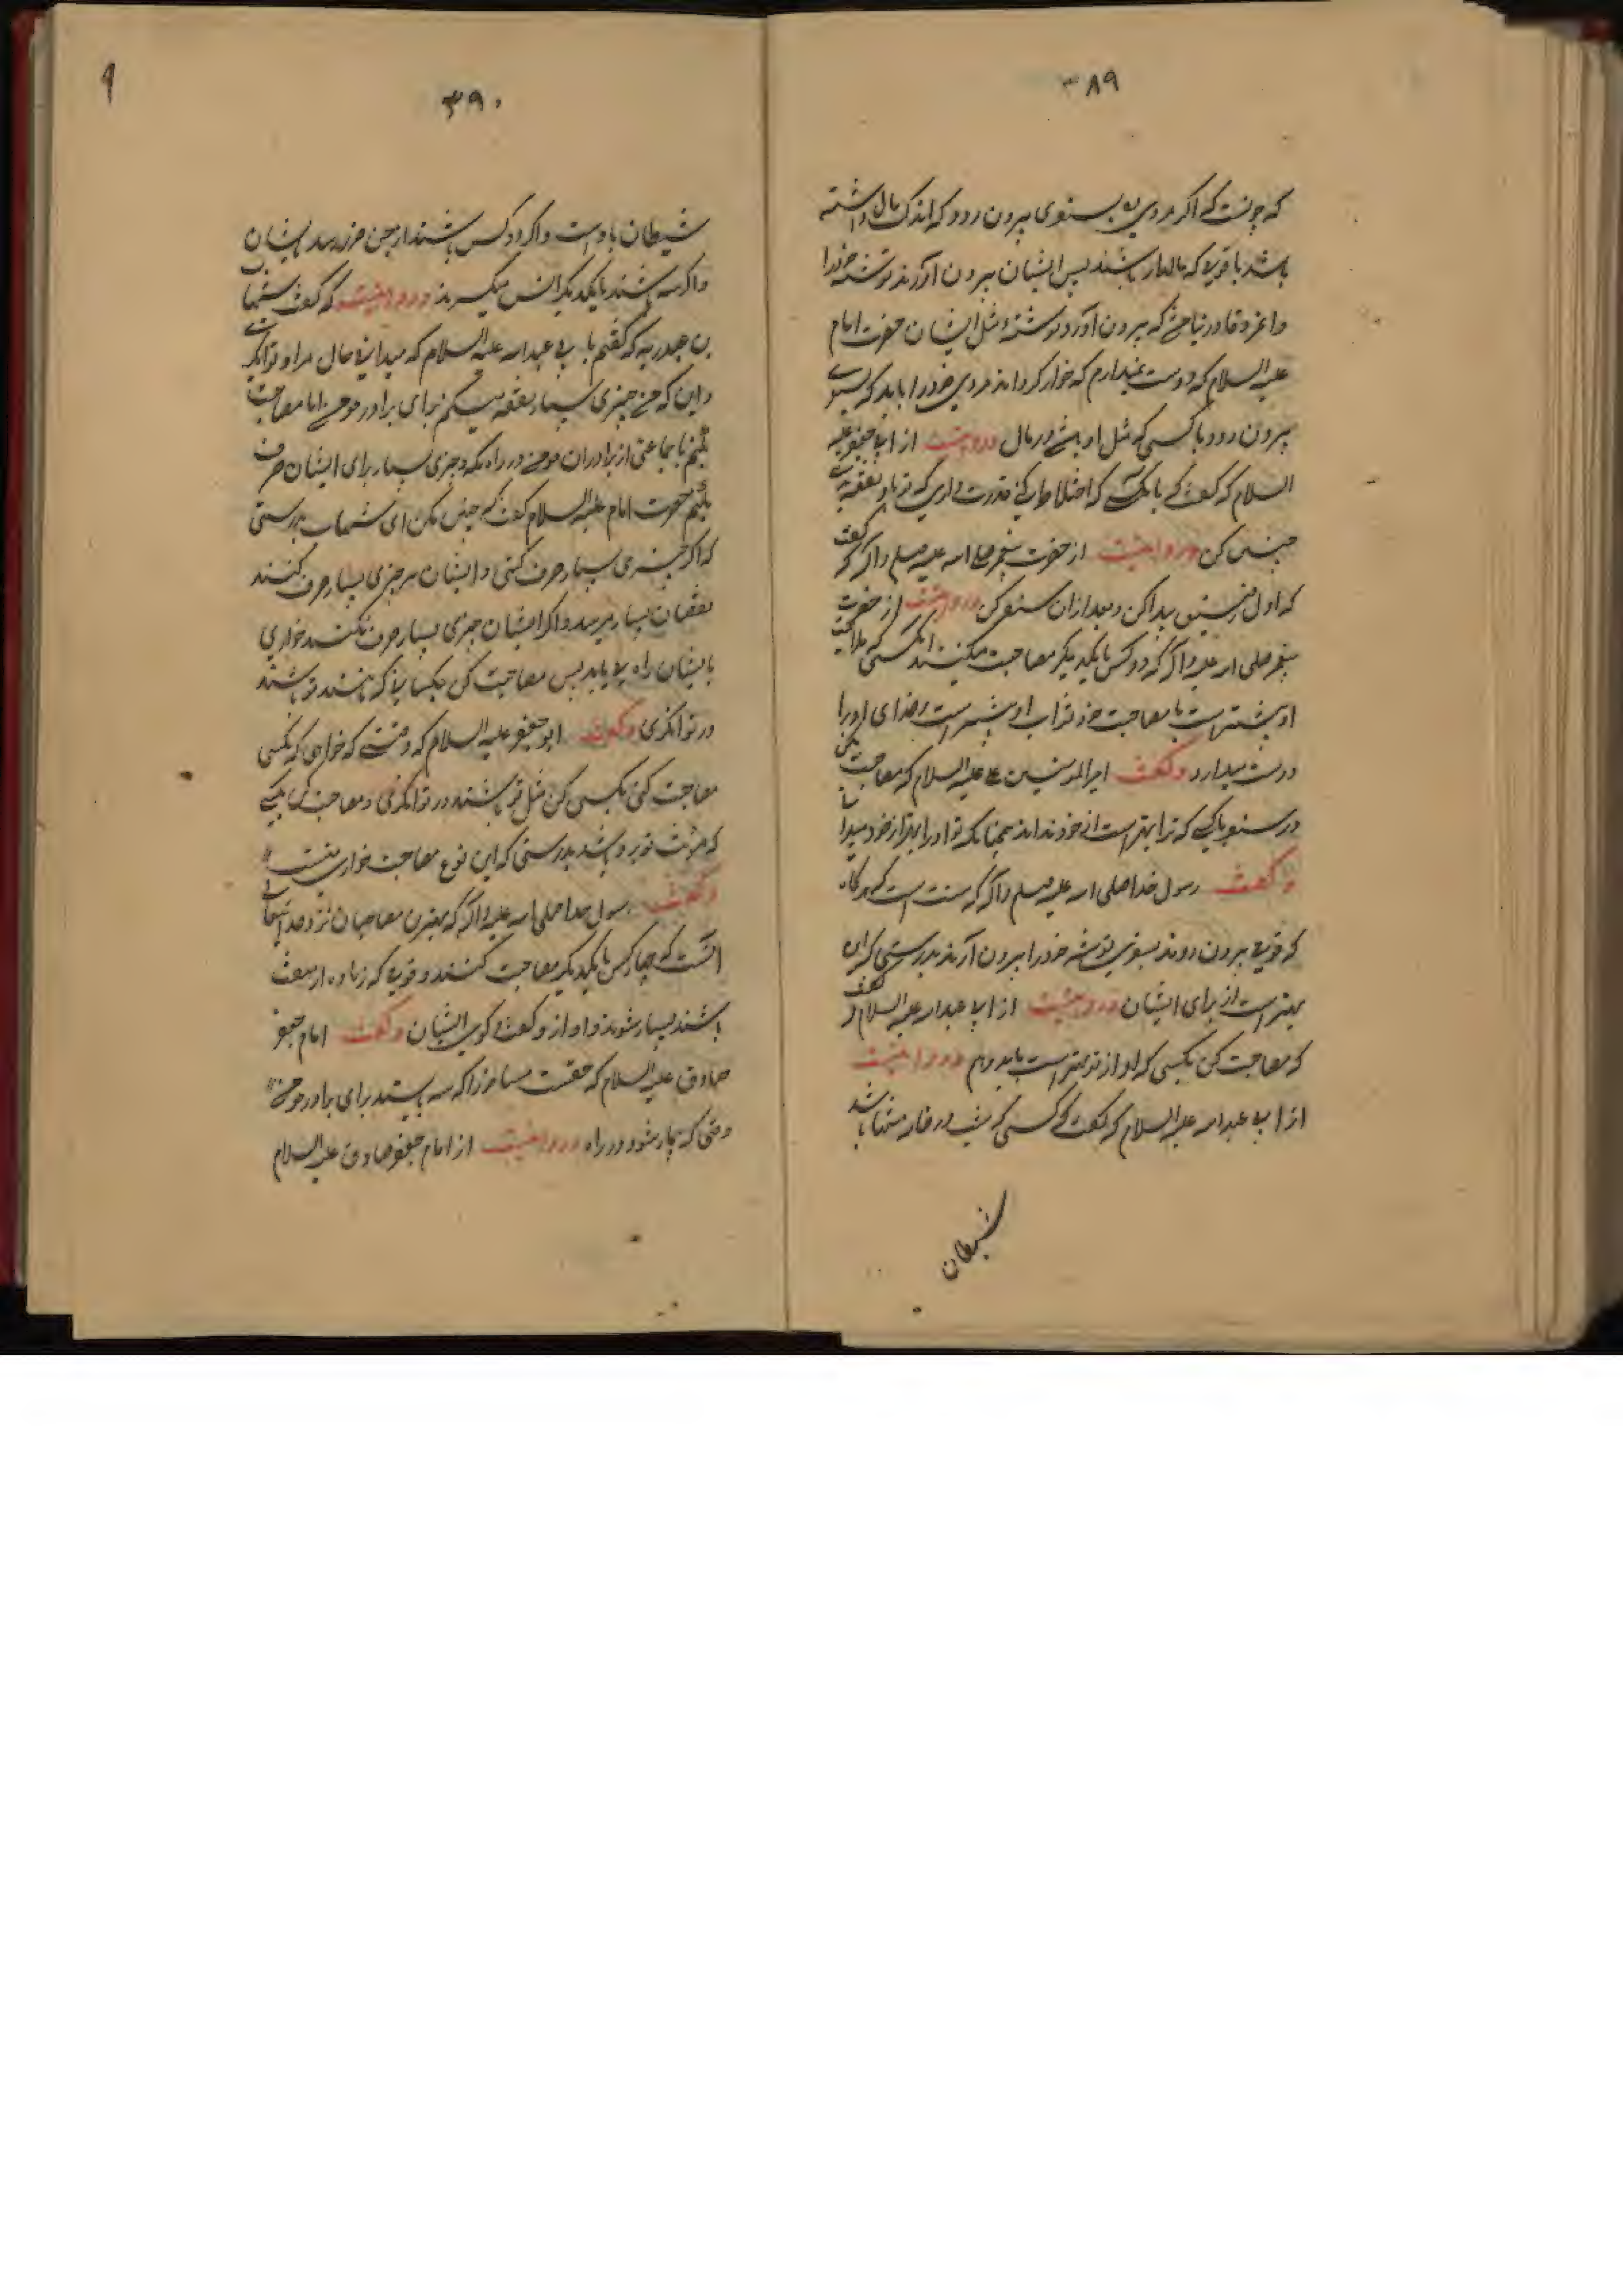 ۳۸۹
که چونست که اگر مردی به سفری بیرون رود که اندک مال داشته
باشد با قومی که مالدار باشند پس ایشان بیرون آورند توشه خود را
و آن مرد قادر نباشد که بیرون آورد توشه مثل ایشان حضرت امام
علیه السلام که دوست نمیدارم که خوار کرداند مردی خود را باید که
بیرون رود با کسی که مثل او باشد در مال و روایتست از ابی جعفر علیه
السلام که گفت که با کسی که اختلاط کنی قدرت داری که
چنین کن و روایتست از حضرت پیغمبر صلی الله علیه وسلم و آله که گفت
که اول رفیق پیدا کن و بعد از آن سفر کن و روایتست از حضرت
پیغمبر صلی الله علیه و آله که دو کس با یکدیگر مصاحبت میکنند آنکسی که ملایمت
او بیشترست با مصاحب خود ثواب او بیشترست و خدای او را
دوست میدارد و گفت امیر المومنین علی علیه السلام که مصاحبت مکن
در سفر با کسی که ترا بهتر است از خود نداند همچنانکه تو او را بهتر از خود میدانی
و گفت رسول خدا صلی الله علیه وسلم و آله که سنت است که هرگاه
که قومی بیرون روند بسفری توشه خود را بیرون آرند بدرستی که این
بهتر است از برای ایشان و روایتست از ابی عبد الله علیه السلام که گفت
که مصاحبت کن بکسی که او از تو بهتر است و روایتست
از ابی عبد الله علیه السلام که گفت که کسی که شب در خانه تنها باشد
شیطان
۳۹۰
شیطان با اوست و اگر دو کس باشند از جن ضرر رسد بایشان
و اگر سه باشند با یکدیگر انس میگیرند و روایتست که گفت شهاب
بن عبد ربه که گفتم با ابی عبد الله علیه السلام که میدانی حال مرا و توانگری
و این که من چیزی بسیار نفقه میکنم برای برادر مومن اما مصاحبت
بکنم با جماعتی از برادران مومن در راه مکه و چیزی بسیار برای ایشان صرف
بکنم حضرت امام علیه السلام گفت که چنین مکن ای شهاب بدرستی
که اگر چیزی بسیار صرف کنی و ایشان هر چیزی بسیار صرف کنند
نقصان بسیار میرسد و اگر ایشان چیزی بسیار صرف نکنند خواری
بایشان راه می یابد پس مصاحبت کن بکسانی که مانند تو باشند
در توانگری و گفت ابو جعفر علیه السلام که وقتی که خواهی که بکسی
مصاحبت کنی بکسی کن مثل تو باشند در توانگری و مصاحبت مکن بکسی
که مؤنت تو برو باشد بدرستی که این نوع مصاحبت خواریست
و گفت رسول خدا صلی الله علیه و آله که بهترین مصاحبان نزد خدای تعالی
آنست که چهار کس با یکدیگر مصاحبت کنند و قومی که زیاده از هفت
باشند بسیار شوند و آواز و گفت و گوی ایشان و گفت امام جعفر
صادق علیه السلام که حقست مسافر را که سه بایستد برای برادر مومن
وقتی که بیمار شود در راه و روایتست از امام جعفر صادق علیه السلام